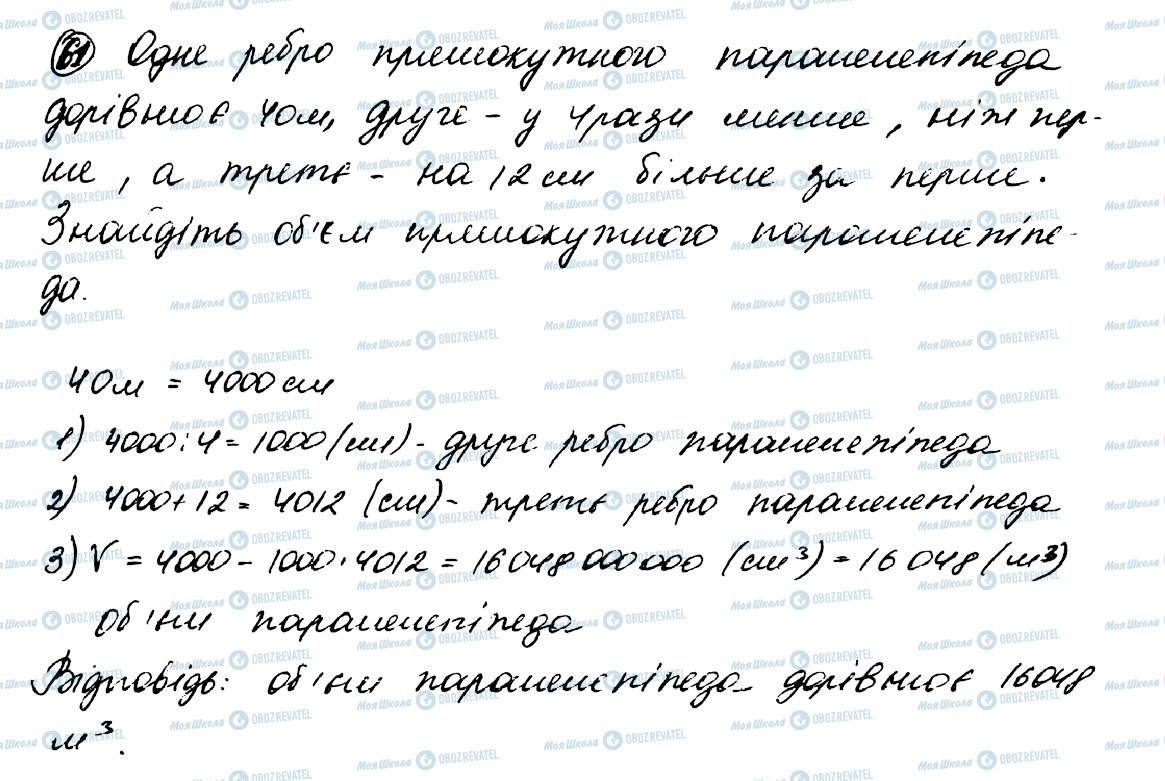 61 Одне ребро прямокутного паралелепіпеда
дорівнює 40м, друге - у 4 рази менше, ніж пер-
ше, а третє - на 12 см більше за перше.
Знайдіть об'єм прямокутного паралелепіпе-
да.
40м = 4000 см
1) 4000:4 = 1000 (см) - друге ребро паралелепіпеда
2) 4000+12 = 4012 (см) - третє ребро паралелепіпеда
3) V = 4000 - 1000·4012 = 16048 000 000 (см³) = 16 048 (м³)
об'єм паралелепіпеда
Відповідь: об'єм паралелепіпеда дорівнює 16048
м³.
МояШкола OBOZREVATEL